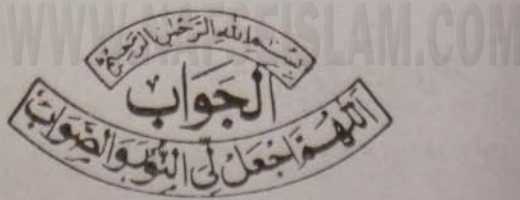 WWW.NAFSEISLAM.COM
بِسْمِ اللهِ الرَّحْمٰنِ الرَّحِيْمِ
اَلْجَوَابُ
اَللّٰهُمَّ اجْعَلْ لِّی النُّوْرَ وَالصَّوَابَ